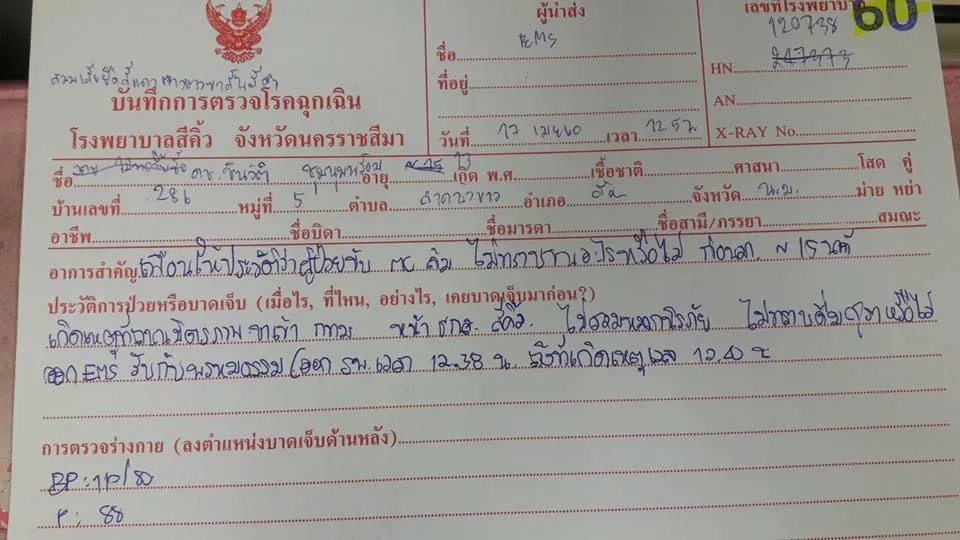 ผู้นำส่ง
เลขที่โรงพยาบาล 60
120738
ชื่อ EMS
HN 247373
ที่อยู่
บันทึกการตรวจโรคฉุกเฉิน
AN
โรงพยาบาลสีคิ้ว จังหวัดนครราชสีมา
วันที่ 17 เมย 60 เวลา
X-RAY No.
ชื่อ ดช. ชินวัติ อายุ 13 เกิด พ.ศ. เชื้อชาติ ศาสนา โสด คู่
บ้านเลขที่ 286 หมู่ที่ 5 ตำบล ลาดบัวขาว อำเภอ จังหวัด น.ม. ม่าย หย่า
อาชีพ ชื่อบิดา ชื่อมารดา ชื่อสามี/ภรรยา สมณะ
อาการสำคัญ เพื่อนให้ประวัติว่าผู้ป่วยขับ MC ล้ม ไม่ทราบชนอะไรหรือไม่ ก่อนมา ~ 15 นาที
ประวัติการป่วยหรือบาดเจ็บ (เมื่อไร, ที่ไหน, อย่างไร, เคยบาดเจ็บมาก่อน?)
เกิดเหตุที่ถนนมิตรภาพ ขาเข้า กทม หน้า ธกส. สีคิ้ว ไม่สวมหมวกนิรภัย ไม่ทราบดื่มสุราหรือไม่
ออก EMS รับกับพรหมธรรม (ออก รพ. เวลา 12.38 น. ถึงที่เกิดเหตุเวลา 12.40 น
การตรวจร่างกาย (ลงตำแหน่งบาดเจ็บด้านหลัง)
BP : 110/80
P : 88